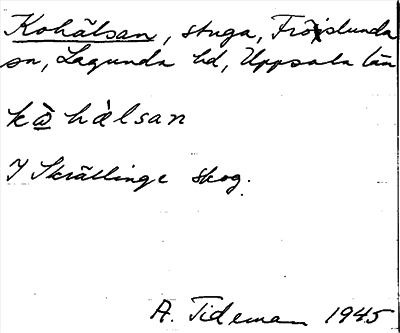 Kohälsan, stuga, Fröslunda
sn, Lagunda hd, Uppsala län
kò̲ hàlsan
I Skrällinge skog.
A. Tideman 1945